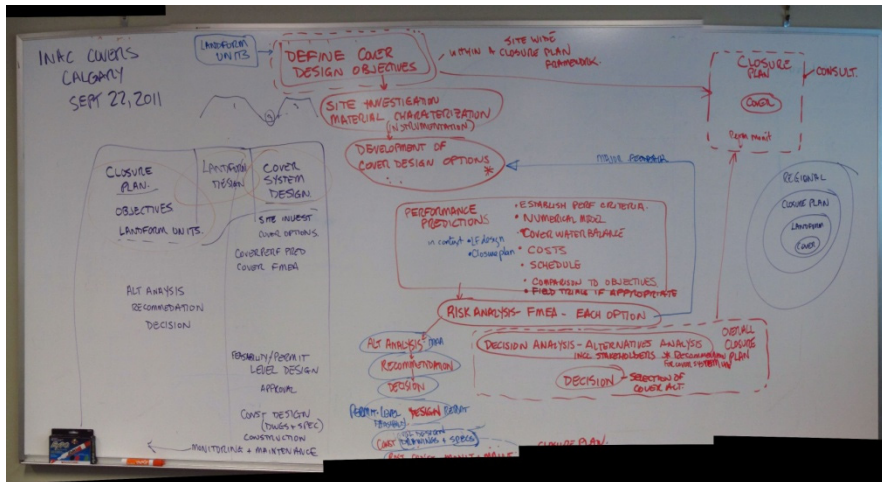 INAC COVERS
CALGARY
SEPT 22, 2011
LANDFORM
UNITS
DEFINE COVER
DESIGN OBJECTIVES
SITE WIDE
WITHIN A CLOSURE PLAN
FRAMEWORK.
SITE INVESTIGATION
MATERIAL CHARACTERIZATION
(INSTRUMENTATION)
DEVELOPMENT OF
COVER DESIGN OPTIONS *
MAJOR
CLOSURE
PLAN
CONSULT.
COVER
REGIONAL
CLOSURE PLAN
LANDFORM
COVER
CLOSURE
PLAN.
OBJECTIVES
LANDFORM UNITS.
LANDFORM
DESIGN
COVER
SYSTEM
DESIGN
SITE INVEST
COVER OPTIONS
COVER PERF PRED
COVER FMEA
ALT ANALYSIS
RECOMMEDATION
DECISION
FEASABILITY/PERMIT
LEVEL DESIGN
APPROVAL
CONST DESIGN
(DWGS + SPEC)
CONSTRUCTION
MONITORING + MAINTENANCE
PERFORMANCE
PREDICTIONS
in context • LF design
• Closure plan
• ESTABLISH PERF CRITERIA.
• NUMERICAL MODEL
• COVER WATER BALANCE
• COSTS
• SCHEDULE
• COMPARISON TO OBJECTIVES.
• FIELD TRIALS IF APPROPRIATE
RISK ANALYSIS - FMEA - EACH OPTION
ALT ANALYSIS
RECOMMENDATION
DECISION
PERMIT-LEVEL DESIGN
CONST DRAWINGS + SPECS
DECISION ANALYSIS - ALTERNATIVES ANALYSIS
INCL STAKEHOLDERS * RECOMMENDATION
FOR COVER SYSTEM
OVERALL
CLOSURE
PLAN
DECISION - SELECTION OF
COVER ALT.
CLOSURE PLAN.
EXPO